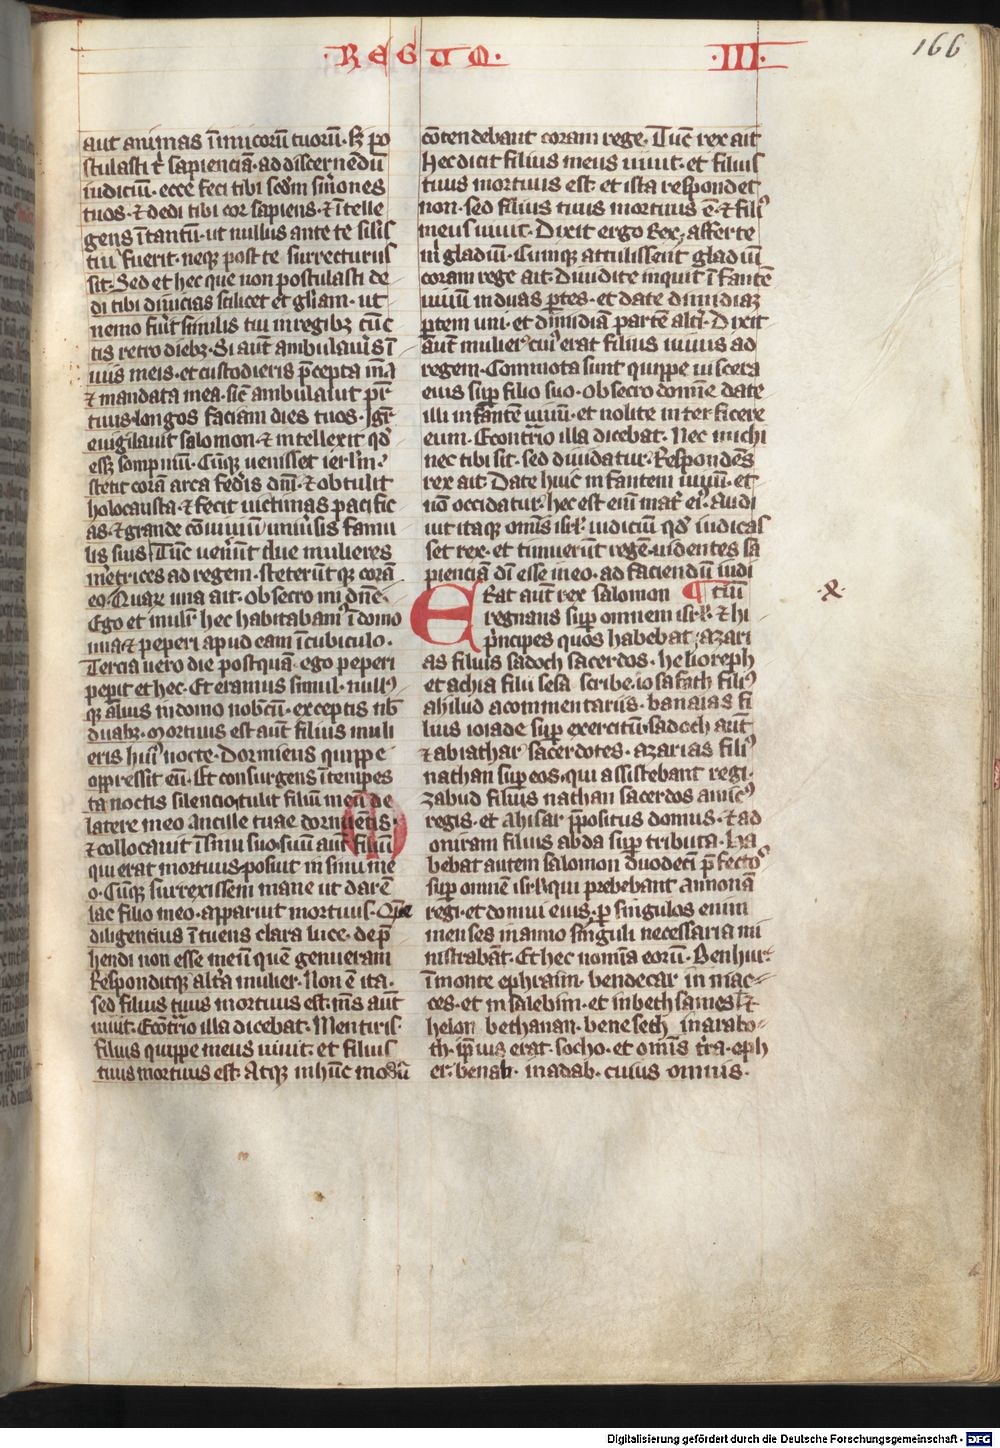 ·REGUM·
·III·
166
aut animas ī inimicorū tuorū· s; po
stulasti t̄ sapienciā· ad discernēdū
iudiciū· ecce feci tibi scd̄m sm̄ones
tuos· ⁊ dedi tibi cor sapiens· ⁊ ītelle
gens ītantū· ut nullus ante te silīs
tui fuerit· neq post te surrecturus
sit· Sed et hec que non postulasti de
di tibi diuicias scilicet et gl̄iam· ut
nemo fuīt similis tui in regibꝫ cūc
tis retro diebꝫ· Si aūt ambulaūis ī
uiis meis· et custodieris p̄cepta m̄a
⁊ mandata mea· sic̄ ambulauit pr̄
tuus· longos faciam dies tuos· Igr̄
euigilauit salomon· ⁊ intellexit qd̄
esꝫ sompniū· Cūq uenisset ierl̄m·
stetit corā arca fed̄is dn̄i· ⁊ obtulit
holocausta· ⁊ fecit uictimas pacific
as· ⁊ grande cōuiuiū uniūsis famu
lis suis Tūc uen̄unt due mulieres
m̄etrices ad regem· steterūtq corā
eo· Quaꝝ una ait· obsecro mi dn̄e·
Ego et mulī hec habitabam' ī domo
una· ⁊ peperi apud eam ī cubiculo·
Tercia uero die postquā· ego peperi
pepit et hec· Et eramus simul· null'
q; alius in domo nobcū· exceptis nb̄
duabꝫ· Mortuus est aūt filius muli
eris hui' nocte· Dormiens quippe
oppressit eū· Et consurgens ītempes
ta noctis silencio· tulit filiū meū de
latere meo ancille tuae dormiētis·
⁊ collocauit ī sinu suo· suū aūt filiū
qui erat mortuus· posuit in sinu me
o· Cūq surrexissem mane ut darē
lac filio meo· apparuit mortuus· Quē
diligencius ītuens clara luce· dep̄
hendi non esse meū quē genueram
Responditq alt̄a mulier· Non ē ita·
sed filius tuus mortuus est· m̄s aūt
uiuit· Ecōtr̄io illa dicebat· Mentiris·
filius quippe meus uiuit· et filius
tuus mortuus est· Atq; in hūc modū
cōtendebant coram rege· Tūc rex ait
Hec dicit filius meus uiuit· et filius
tuus mortuus est· et ista respondet
non· sed filius tuus mortuus ē· ⁊ fili'
meus uiuit· Dixit ergo Rex· afferte
m̄ gladiū· Cumq; attulissent gladiū
coram rege ait· Diuidite inquit īfantē
uiuū in duas p̄tes· et date dimidiaꝫ
p̄tem uni· et dimidiā partē alt̄i· Dixit
aūt mulier cui' erat filius uiuus ad
regem· Commota sunt quippe uiscera
eius suꝑ filio suo· Obsecro domīe date
illi infantē uiuū· et nolite interficere
eum· Econtr̄io illa dicebat· Nec michi
nec tibi sit· sed diuidatur· Respondēs
rex ait· Date huic infantem uiuū· et
nō occidatur· hec est enī mat̄ ei'· Audi
uit itaq omīs isrl̄· iudiciū qd̄ iudicas
set rex· et timuerūt regē· uidentes sa
pienciā dī esse in eo· ad faciendū iudi
ERat aūt rex salomon ¶ tiū
regnans suꝑ omnem isrl̄· ⁊ hi
p̄ncipes quos habebat· azari
as filius sadoch sacerdos· helioreph
et achia filii sesa scribe· iosafath fili'
ahilud a commentariis· banaias fi
lius ioiade suꝑ exercitū· sadoch aūt
⁊ abiathar sacerdotes· azarias fili'
nathan suꝑ eos· qui assistebant regi·
zabud filius nathan sacerdos amic'
regis· et Ahisar p̄positus domus· ⁊ ad
oniram filius abda suꝑ tributa· Ha
bebat autem salomon duodecī p̄fecto'
suꝑ omnē isrl̄· qui prebebant annonā
regi· et domui eius· ꝑ singulos enim
menses in anno singuli necessaria mi
nistrabāt· Et hec nomīa eorū· Benhur
ī monte ephraim· bendecar in mac
ces· et in salebim· et in beth sames ⁊
helon bethanan· benesech in arabo
th· ip̄ius erat· socho· et omīs t̄ra· eph
er· benab· inadab· cuius omnis·
·x·
Digitalisierung gefördert durch die Deutsche Forschungsgemeinschaft - DFG